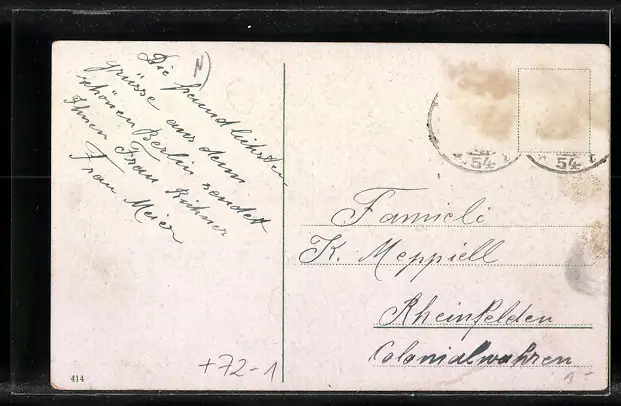 Die freundlichsten
grüsse aus dem
schönen Berlin sendet
Ihnen Frau Kühner
Frau Meier
54
54
Famieli
K. Meppiell
Rheinfelden
Colonialwahren
+72-1
414
1-